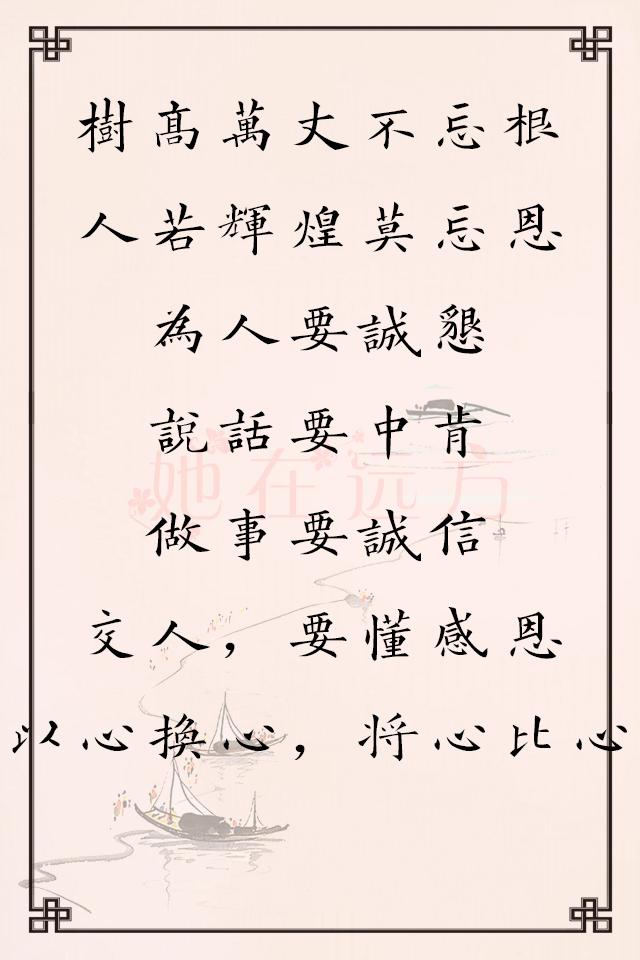 樹髙萬丈不忘根
人若輝煌莫忘恩
為人要誠懇
她在远方
說話要中肯
做事要誠信
交人，要懂感恩
以心換心，将心比心